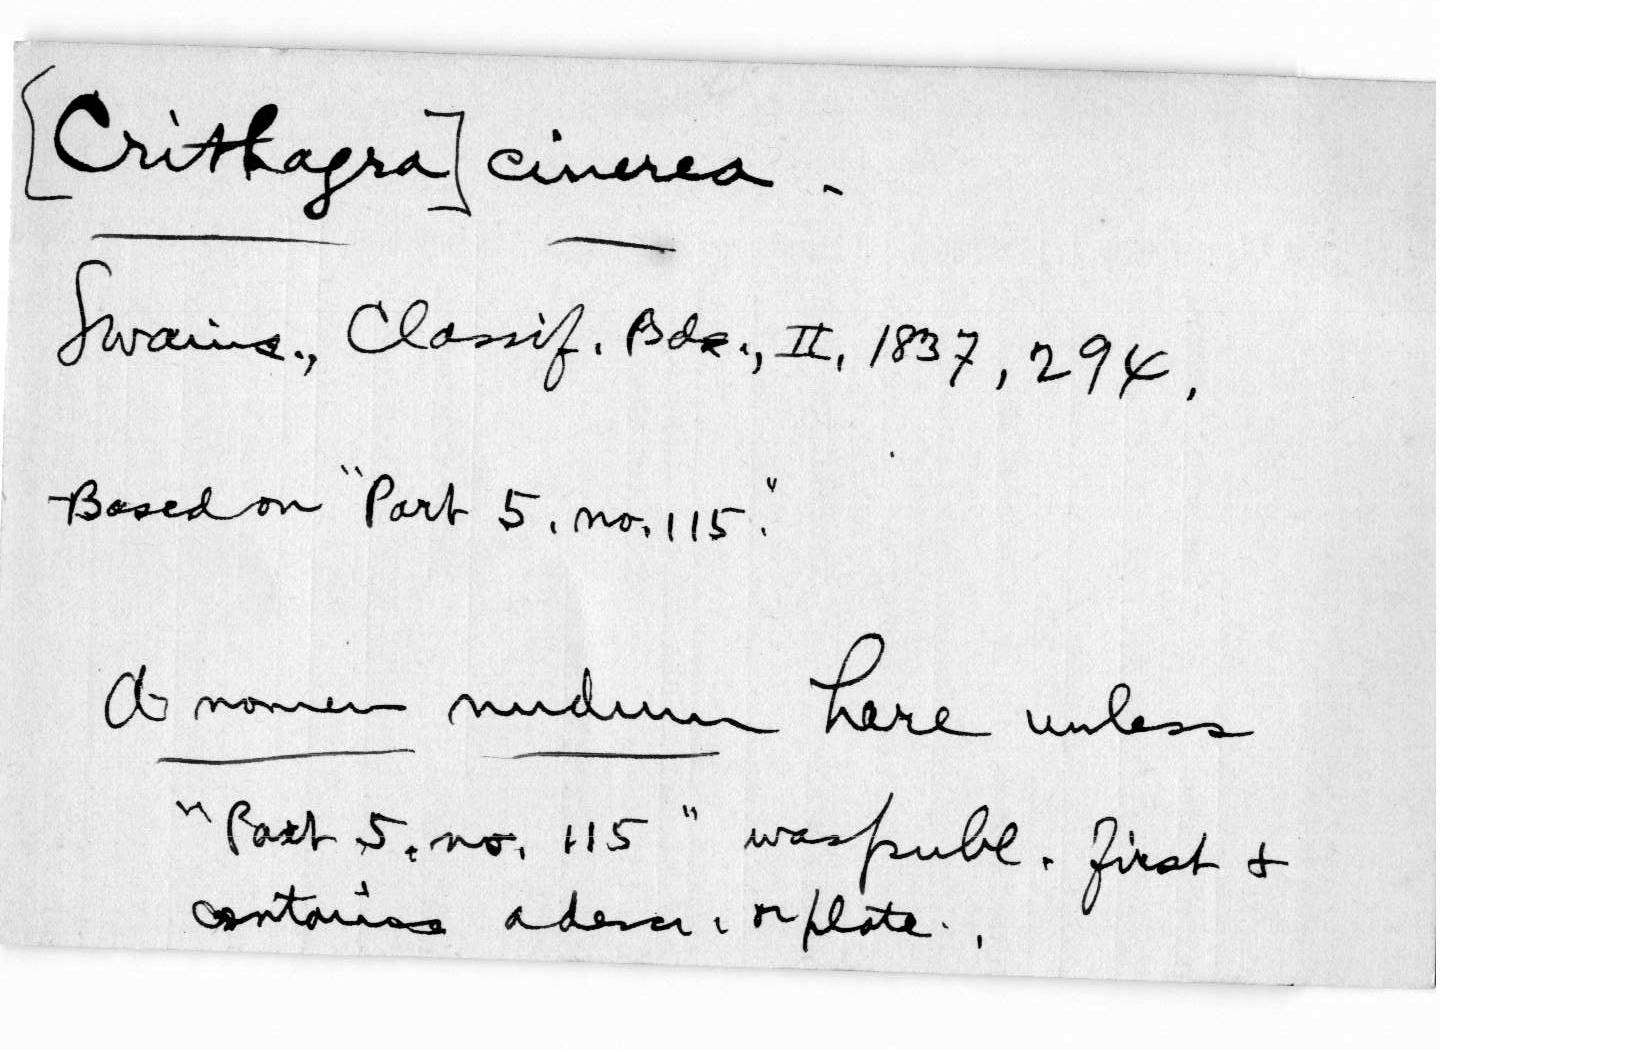 [Crithagra] cinerea.
Swains., Classif. Bds., II, 1837, 294.
Based on "Part 5, no. 115."
A nomen nudum here unless
"Part 5, no. 115" was publ. first &
contains a descr. or plate.